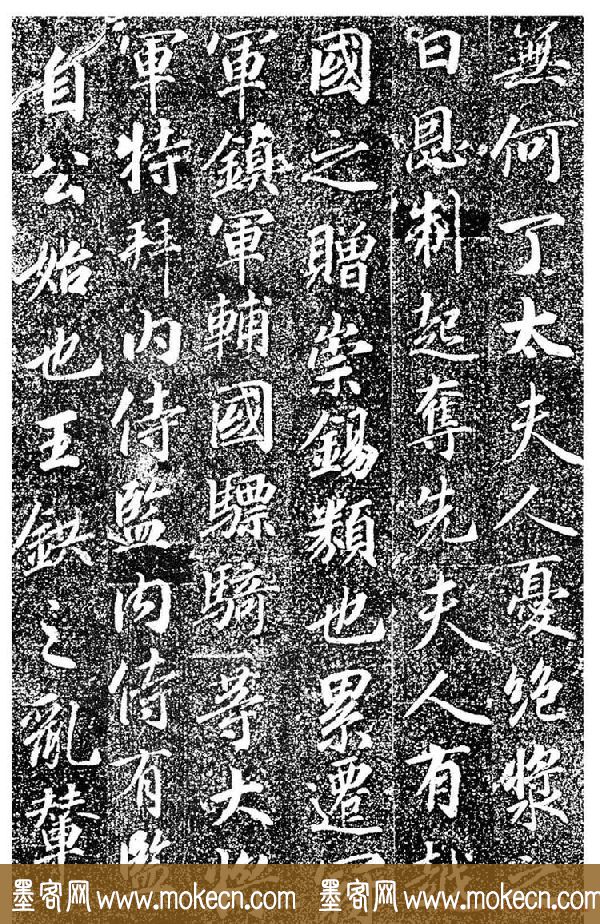 無何丁太夫人憂絕漿
日恩制起奪先夫人有越
國之贈崇錫類也累遷
軍鎮軍輔國驃騎等大
軍特拜内侍監内侍有監
自公始也王鉷之亂輦
墨客网 www.mokecn.com 墨客网 www.mokecn.com